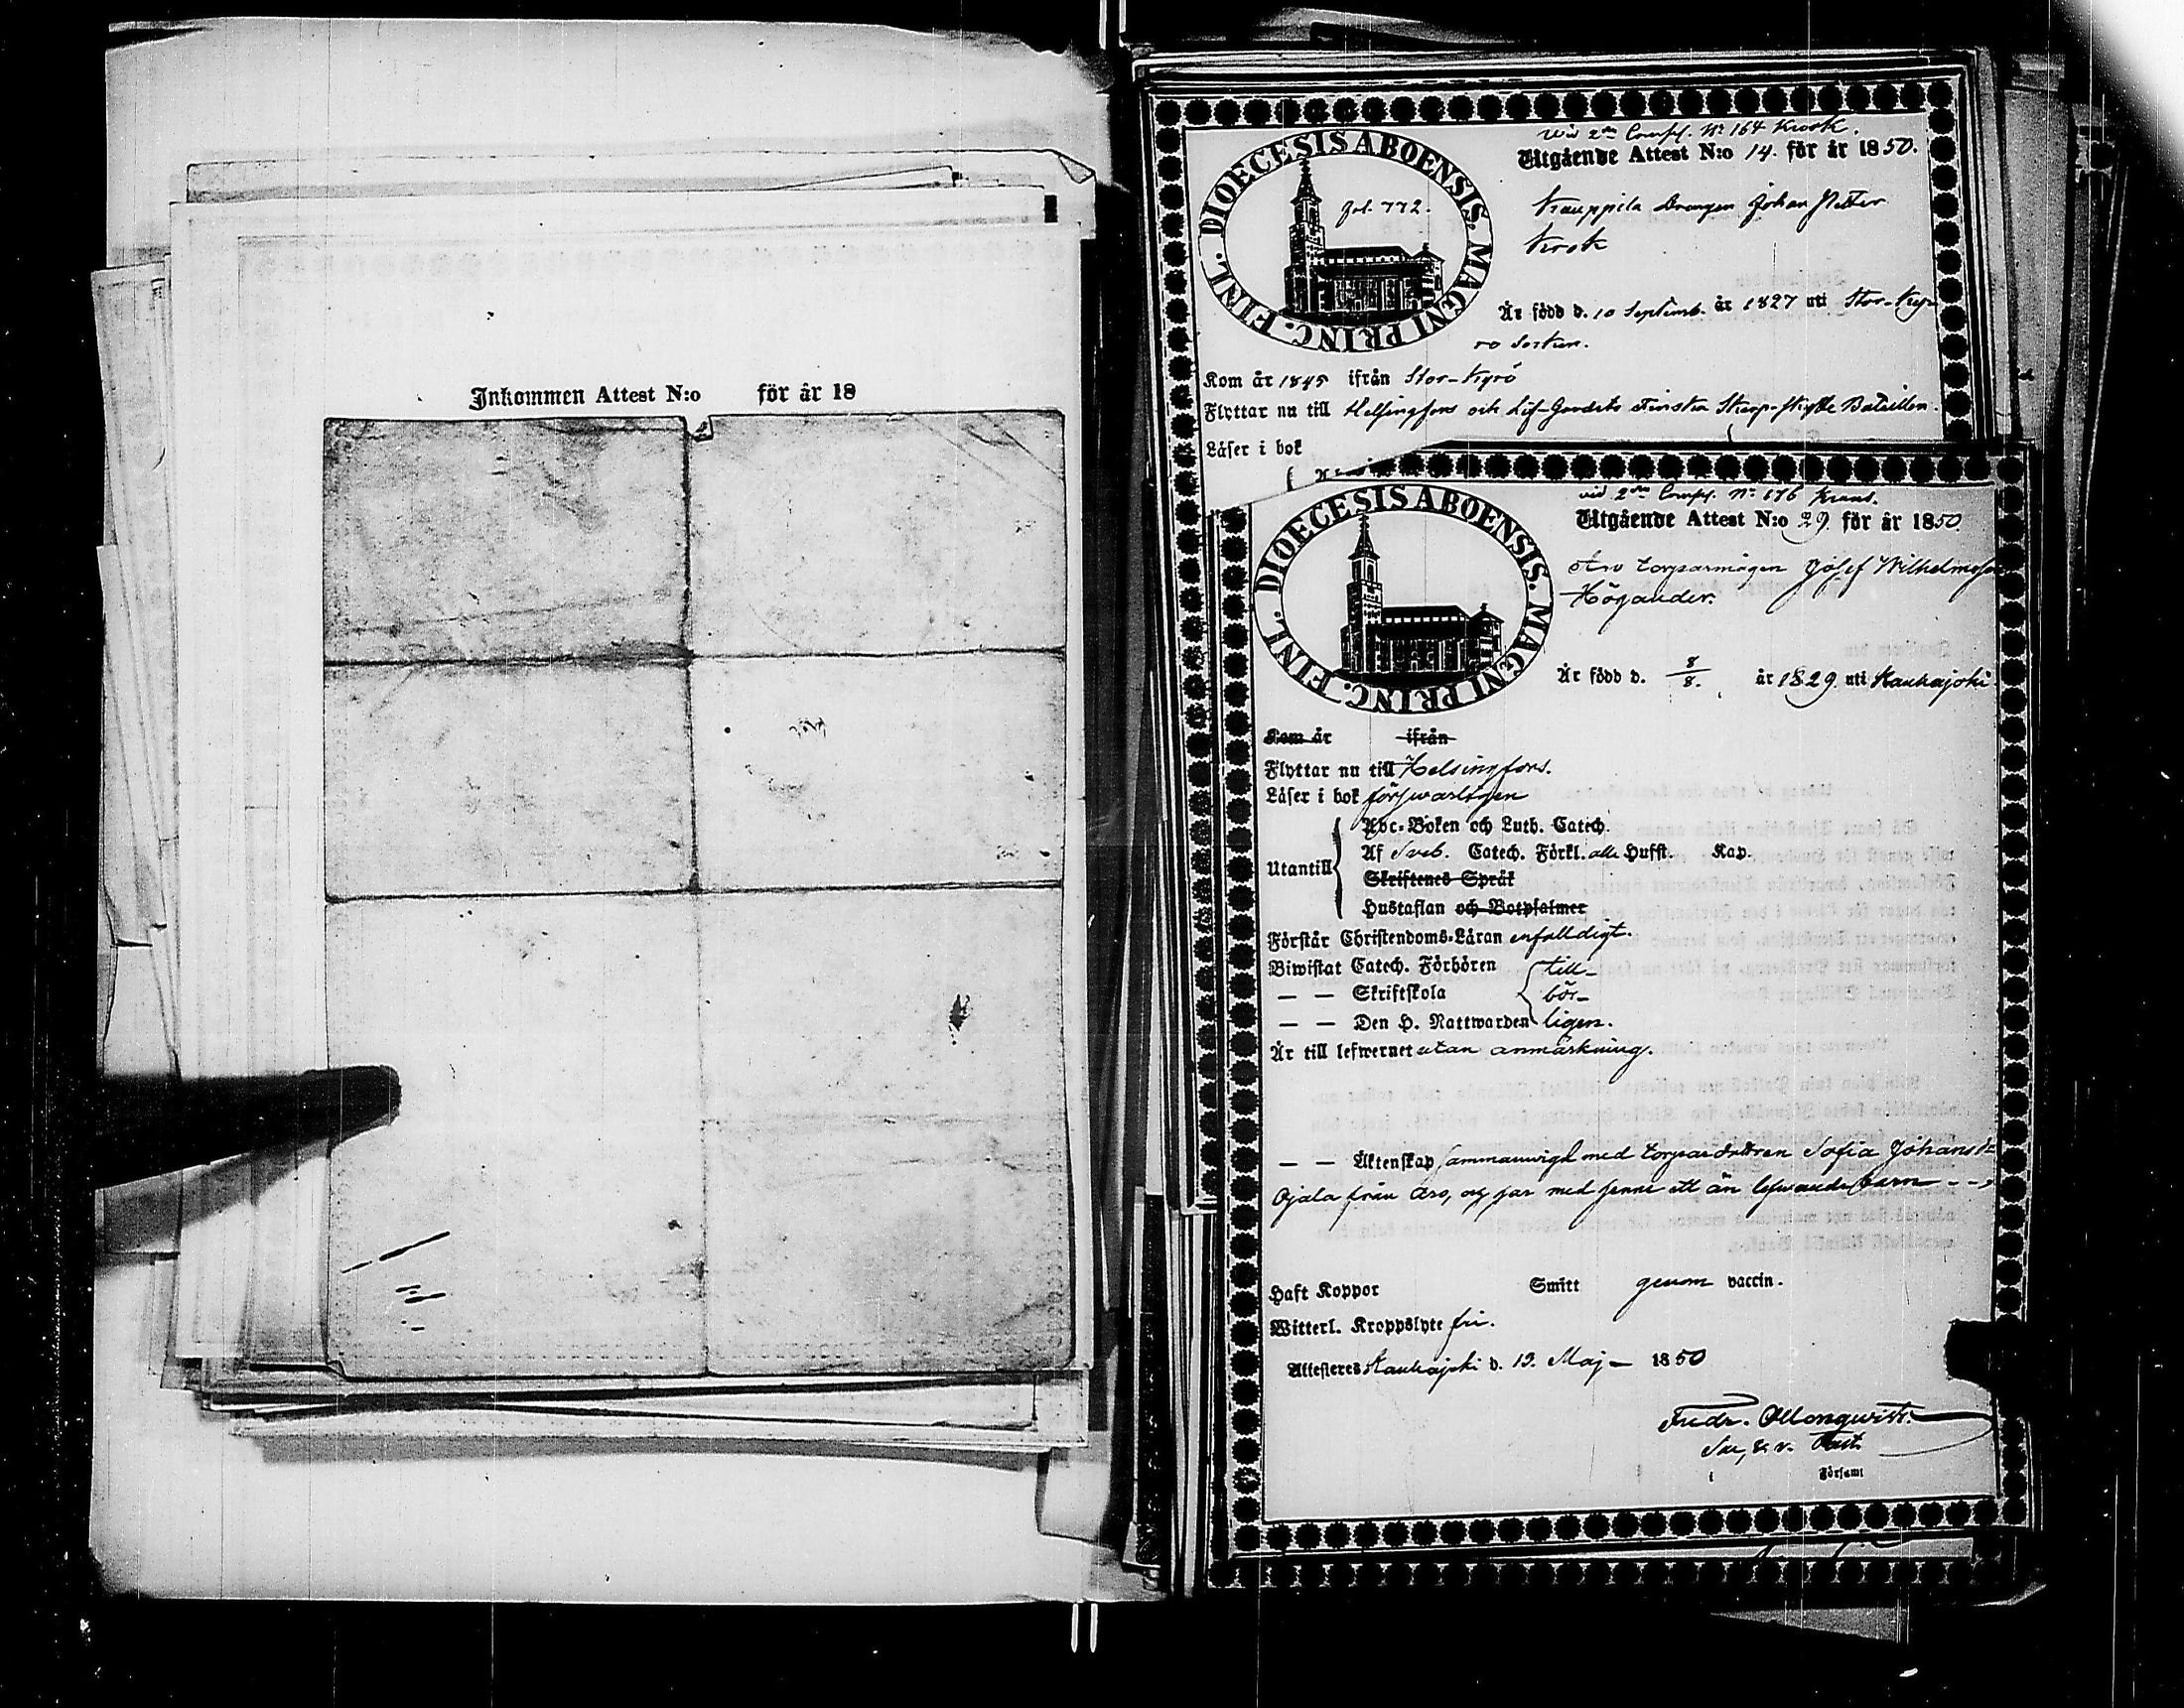 Inkommen Attest N:o för år 18
wid 2dra Comp. No 164 Krook.
Utgående Attest N:o 14. för år 1850.
DIOECESIS ABOENSIS. MAGNI PRINC. FINL.
fol. 772.
Drengen Johan Petter
Krok
Är född d. 10 Septemb. år 1827 uti Stor-Kyr-
ro Socken.
Kom år 1845 ifrån Stor-Kyrö
Flyttar nu till Helsingfors och Lif-Gardets Finska Skarp-skytte Bataillon.
Läser i bok
vid 2dra Comp. No 176
Utgående Attest N:o 29. för år 1850
DIOECESIS ABOENSIS. MAGNI PRINC. FINL.
Aro torparmågen Josef Wilhelmsson
Högander.
Är född d. 8/8. år 1829. uti Kauhajoki.
Kom år ifrån
Flyttar nu till Helsingfors.
Läser i bok förswarligen
Utantill
Abc-Boken och Luth. Catech.
Af Sveb. Catech. Förkl. alla Hufst. Kap.
Skriftenes Språk
Hustaflan och Botpsalmer
Förstår Christendoms-Läran enfalldigt.
Biwistat Catech. Förhören till-
— — Skriftskola bör-
— — Den H. Nattwarden ligen.
Är till lefwernet utan anmärkning.
— — Äktenskap sammanvigd med torparedottren Sofia Johansdr
Ojala från Aro, och har med henne ett än lefwande barn - -
Haft Koppor Smitt genom vaccin.
Witterl. Kroppslyte fri.
Attesteres Kauhajoki d. 13. Maj — 1850
Fredr.
i Församl